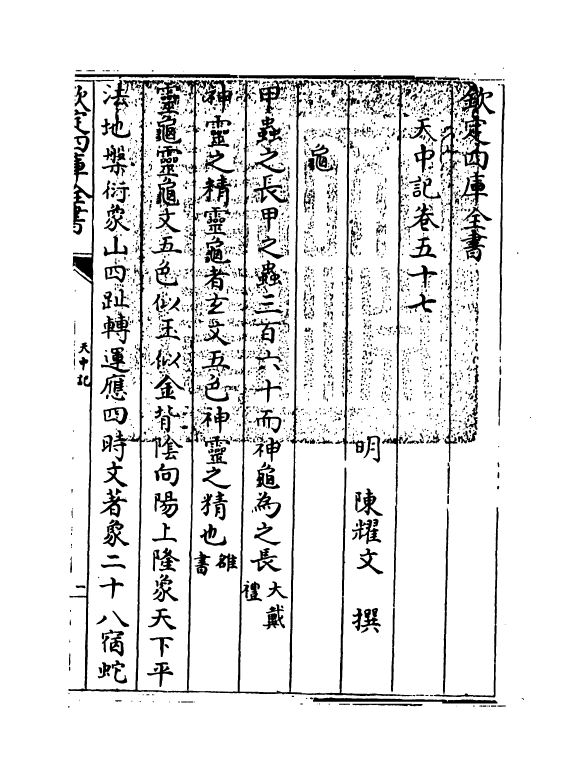 欽定四庫全書
天中記卷五十七
明 陳耀文 撰
龜
甲蟲之長甲之蟲三百六十而神龜為之長大戴禮
神靈之精靈龜者玄文五色神靈之精也雒書
靈龜靈龜文五色似玉似金背陰向陽上隆象天下平
法地槃衍象山四趾轉運應四時文著象二十八宿蛇
欽定四庫全書
天中記